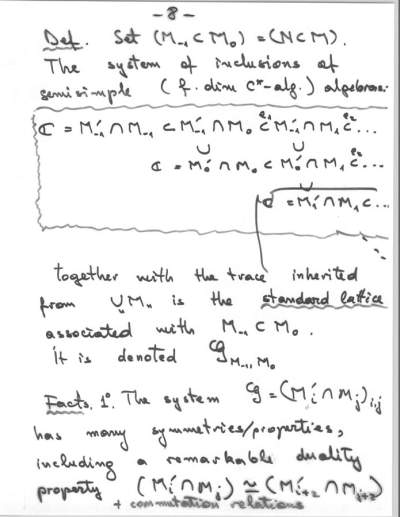 - 8 -
Def. Set (M₋₁ ⊂ M₀) = (N ⊂ M).
The system of inclusions of
semisimple (f. dim C*-alg.) algebras:
ℂ = M'₋₁ ∩ M₋₁ ⊂ M'₋₁ ∩ M₀ ⊂^{e₁} M'₋₁ ∩ M₁ ⊂^{e₂} ...
∪ ∪
ℂ = M'₀ ∩ M₀ ⊂ M'₀ ∩ M₁ ⊂^{e₂} ...
∪
ℂ = M'₁ ∩ M₁ ⊂ ...
together with the trace inherited
from ∪ₙ Mₙ is the standard lattice
associated with M₋₁ ⊂ M₀.
It is denoted 𝒢_{M₋₁, M₀}
Facts. 1°. The system 𝒢 = (M'ᵢ ∩ Mⱼ)ᵢ,ⱼ
has many symmetries/properties,
including a remarkable duality
property (M'ᵢ ∩ Mⱼ) ≃ (M'ᵢ₊₂ ∩ Mⱼ₊₂)
+ commutation relations